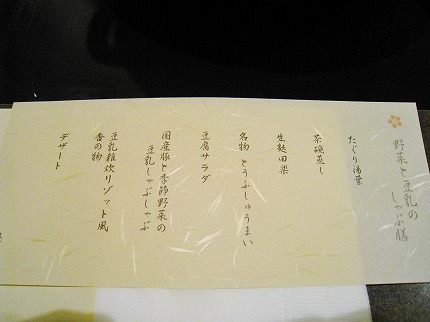 野菜と豆乳の
しゃぶ膳
たぐり湯葉
茶碗蒸し
生麩田楽
名物 とうふしゅうまい
豆腐サラダ
国産豚と季節野菜の
豆乳しゃぶしゃぶ
豆乳雑炊リゾット風
香の物
デザート